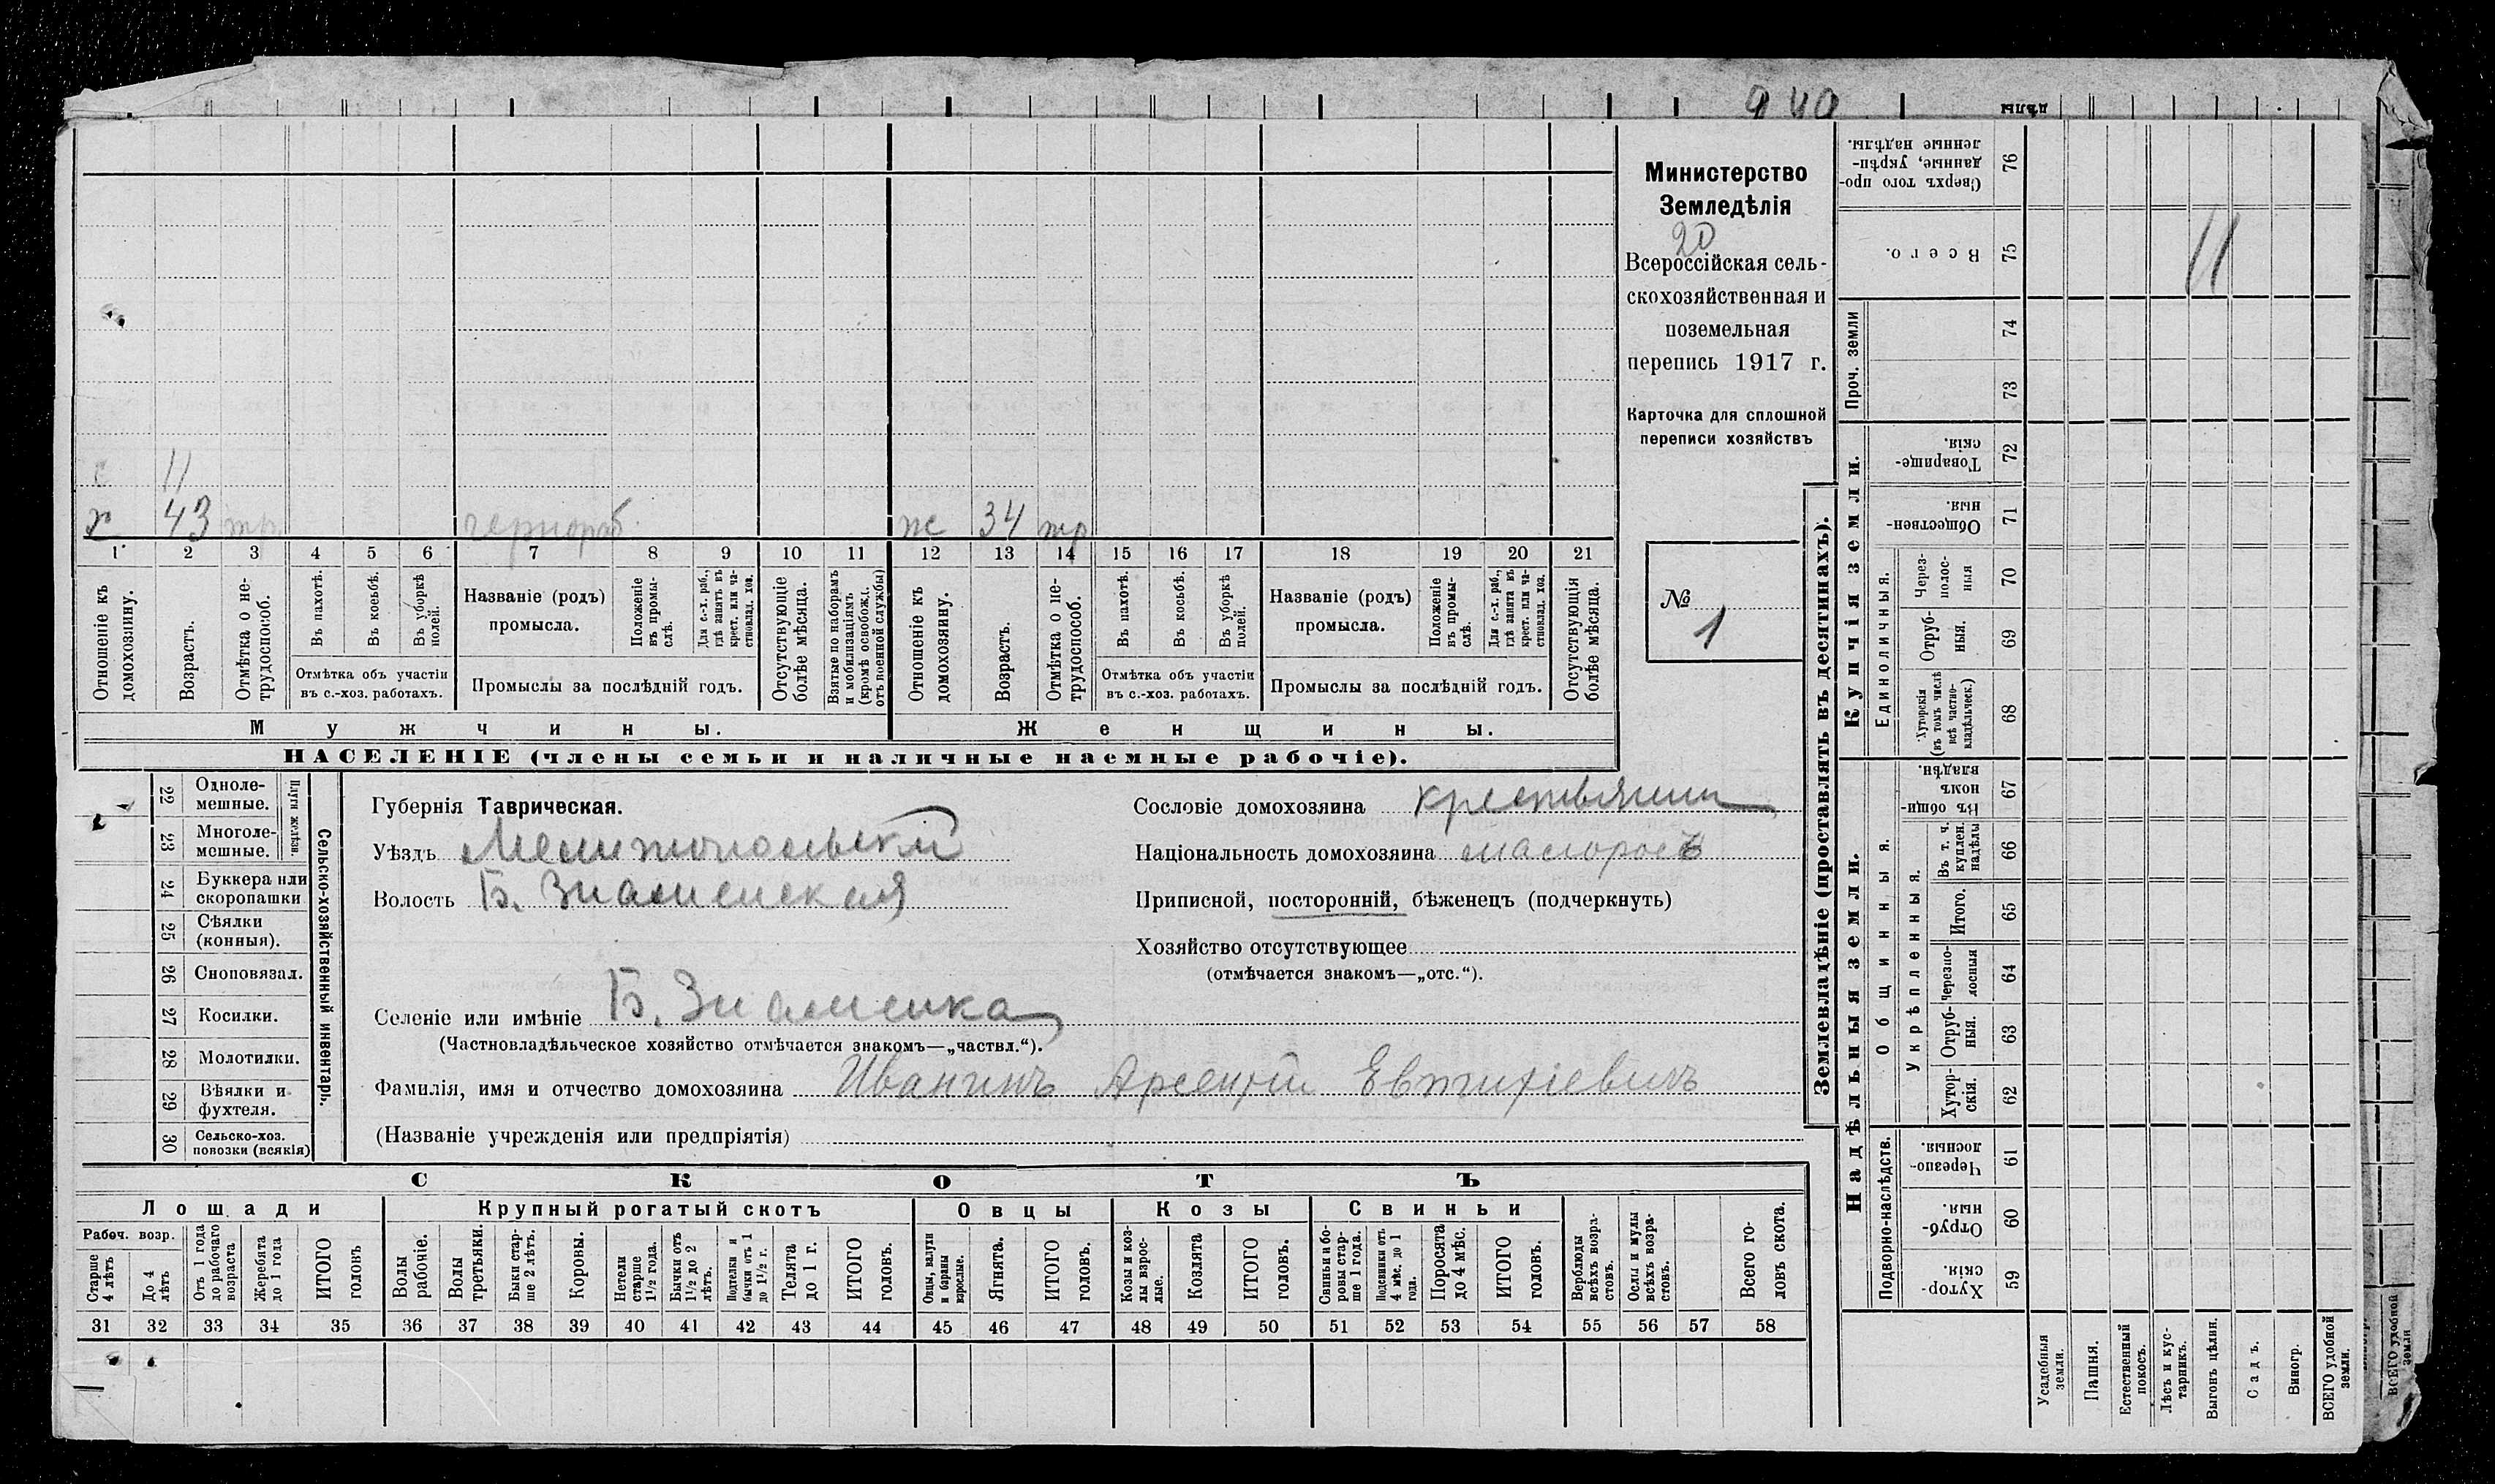 940
дѣлы
Министерство
Земледѣлія
20
Всероссійская сель-
скохозяйственная и
поземельная
перепись 1917 г.
Карточка для сплошной
переписи хозяйствъ
№
1
с 11
х 43 тр. чернораб. ж 34 тр
1 2 3 4 5 6 7 8 9 10 11 12 13 14 15 16 17 18 19 20 21
Отношеніе къ домохозяину.
Возрастъ.
Отмѣтка о не-трудоспособ.
Въ пахотѣ.
Въ косьбѣ.
Въ уборкѣ полей.
Отмѣтка объ участіи
въ с.-хоз. работахъ.
Названіе (родъ)
промысла.
Положеніе въ промы-слѣ.
Для с.-х. раб., гдѣ занятъ въ крест. или ча-стновлад. хоз.
Промыслы за послѣдній годъ.
Отсутствующіе болѣе мѣсяца.
Взятые по наборамъ и мобилизаціямъ (кромѣ освобожд. отъ военной службы)
Отношеніе къ домохозяину.
Возрастъ.
Отмѣтка о не-трудоспособ.
Въ пахотѣ.
Въ косьбѣ.
Въ уборкѣ полей.
Отмѣтка объ участіи
въ с.-хоз. работахъ.
Названіе (родъ)
промысла.
Положеніе въ промы-слѣ.
Для с.-х. раб., гдѣ занята въ крест. или ча-стновлад. хоз.
Промыслы за послѣдній годъ.
Отсутствующія болѣе мѣсяца.
Мужчины. Женщины.
НАСЕЛЕНІЕ (члены семьи и наличные наемные рабочіе).
22 Одноле-мешные.
23 Многоле-мешные.
Плуги желѣзн.
24 Буккера или скоропашки
25 Сѣялки (конныя).
26 Сноповязал.
27 Косилки.
28 Молотилки.
29 Вѣялки и фухтеля.
30 Сельско-хоз. повозки (всякія)
Сельско-хозяйственный инвентарь.
Губернія Таврическая.
Уѣздъ Мелитопольскій
Волость Б. Знаменская
Сословіе домохозяина крестьянин
Національность домохозяина малоросъ
Приписной, посторонній, бѣженецъ (подчеркнуть)
Хозяйство отсутствующее
(отмѣчается знакомъ—„отс.“).
Селеніе или имѣніе Б. Знаменка
(Частновладѣльческое хозяйство отмѣчается знакомъ—„частвл.“).
Фамилія, имя и отчество домохозяина Ивангинъ Арсеній Евтихіевичъ
(Названіе учрежденія или предпріятія)
СКОТЪ
Лошади Крупный рогатый скотъ Овцы Козы Свиньи
Рабоч. возр.
Старше 4 лѣтъ
До 4 лѣтъ
Отъ 1 года до рабочаго возраста
Жеребята до 1 года
ИТОГО головъ
Волы рабочіе.
Волы третьяки.
Быки стар-ше 2 лѣтъ.
Коровы.
Нетели старше 1½ года.
Бычки отъ 1½ до 2 лѣтъ.
Подтелки и бычки отъ 1 до 1½ г.
Телята до 1 г.
ИТОГО головъ.
Овцы, валухи и бараны взрослые.
Ягнята.
ИТОГО головъ.
Козы и коз-лы взрос-лые.
Козлята
ИТОГО головъ.
Свиньи и бо-ровы стар-ше 1 года.
Подсвинки отъ 4 мѣс. до 1 года.
Поросята до 4 мѣс.
ИТОГО головъ.
Верблюды всѣхъ возра-стовъ.
Ослы и мулы всѣхъ возра-стовъ.
Всего го-ловъ скота.
31 32 33 34 35 36 37 38 39 40 41 42 43 44 45 46 47 48 49 50 51 52 53 54 55 56 57 58
Землевладѣніе (проставлять въ десятинахъ).
Сверхъ того про-данные, укрѣп-ленные надѣлы. 76
Всего. 75
11
Проч. земли
74
73
Купчія земли.
Товарище-скія. 72
Обществен-ныя 71
Единоличныя.
Через-полос-ныя 70
Отруб-ныя. 69
Хуторскія (въ томъ числѣ всѣ частно-владѣльческ.) 68
Надѣльныя земли.
Общинныя.
Въ общи-номъ владѣн. 67
Укрѣпленныя.
Въ т. ч. куплен. надѣлы 66
Итого. 65
Черезпо-лосныя 64
Отруб-ныя. 63
Хутор-скія. 62
Подворно-наслѣдств.
Черезпо-лосныя. 61
Отруб-ныя. 60
Хутор-скія. 59
Усадебныя земли.
Пашня.
Естественный покосъ.
Лѣсъ и кус-тарникъ.
Выгонъ цѣлин.
Садъ.
Виногр.
ВСЕГО удобной земли.
ВСЕГО удобной земли